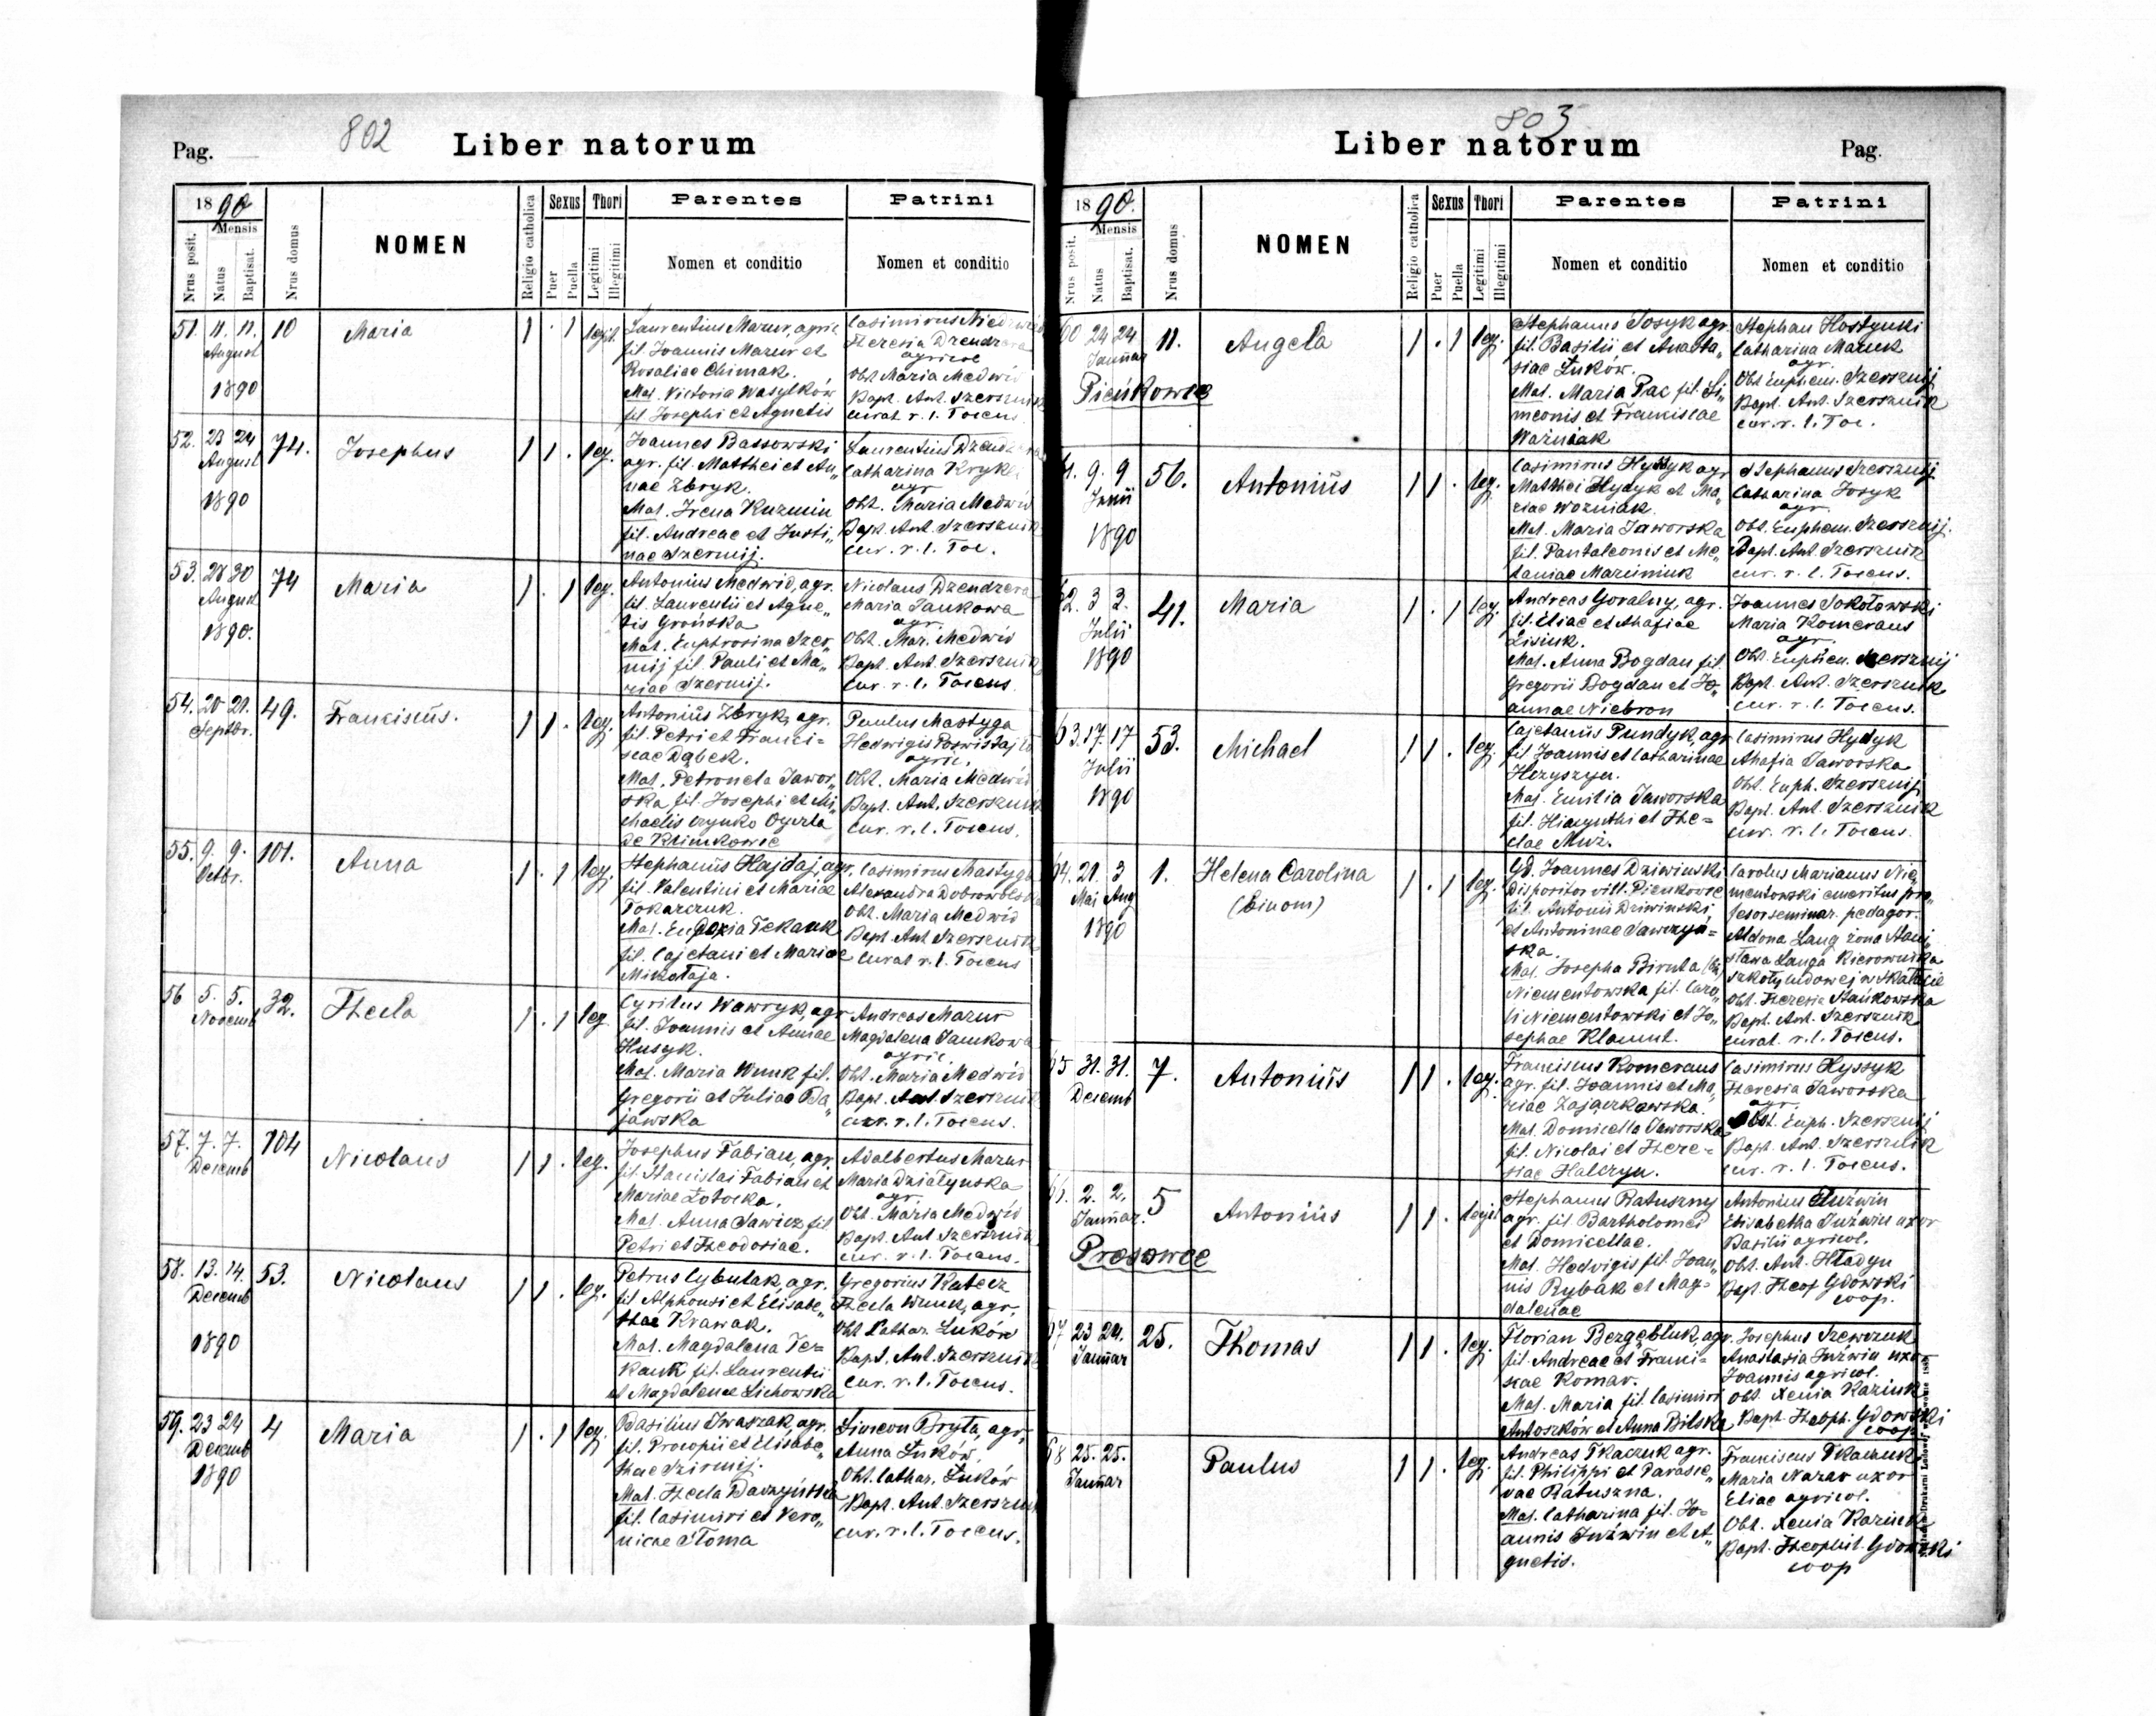 802
Pag.
Liber natorum
1890
Mensis
Nrus posit.
Natus
Baptisat.
Nrus domus
NOMEN
Religio catholica
Sexus
Puer
Puella
Thori
Legitimi
Illegitimi
Parentes
Nomen et conditio
Patrini
Nomen et conditio
51. 11. 11. 10 Maria 1 . 1 legit.
August
1890
Laurentius Mazur, agric
fil. Joannis Mazur et
Rosaliae Chimak.
Mat. Victoria Wasylków
fil Josephi et Agnetis
Casimirus
Theresia
agricol
Obt Maria Medwid
Bapt. Ant. Szersznik
curat r. l. Torcus
52. 23 24 74. Josephus 1 1 . leg.
August
1890
Joannes Bassowski
agr. fil. Matthei et An„
nae Zbryk.
Mat. Irena Kuzmin
fil. Andreae et Justi„
nae Szermij.
Laurentius
Catharina
agr
Obt. Maria Medwid
Bapt. Ant. Szersznik
cur. r. l. Toc.
53. 28 30 74 Maria 1 . 1 leg.
August
1890.
Antonius Medwid, agr.
fil. Laurentii et Agne„
tis Grońska
Mat. Euphrosina Szer„
mij fil. Pauli et Ma„
riae Szermij.
Nicolaus Dzendzera
Maria Jankowa
agr.
Obt. Mar. Medwid
Bapt. Ant. Szersznik
cur. r. l. Torcus.
54. 20 21. 49. Franciscus. 1 1 . leg.
Septbr.
Antonius Zbryk, agr.
fil. Petri et Franci=
scae Dąbek.
Mat. Petronela Jawor„
ska fil. Josephi et Mi„
chaelis
de Klimkowce
Paulus Mastyga
Hedwigis
agric.
Obt. Maria Medwid
Bapt. Ant. Szersznik
cur. r. l. Torcus.
55. 9. 9. 101. Anna 1 . 1 leg.
Octbr.
Stephanus Hajdaj, agr.
fil. Valentini et Mariae
Tokarczuk.
Mat. Eudoxia Tekauk
fil. Cajetani et Mariae
Mikołaja.
Casimirus Mastyga
Alexandra
Obt. Maria Medwid
Bapt. Ant Szersznik
curat r. l. Torcus
56 5. 5. 32. Thecla 1 . 1 leg
Novemb
Cyrilus Wawryk, agr
fil. Joannis et Annae
Husyk.
Mat. Maria Wnuk fil.
Gregorii et Juliae Ba„
jawska
Andreas Mazur
Magdalena Jankowa
agric.
Obt. Maria Medwid
Bapt. Ant. Szersznik
cur. r. l. Torcus.
57. 7. 7. 104 Nicolaus 1 1 . leg.
Decemb
Josephus Fabian, agr.
fil. Stanislai Fabian et
Mariae Żołocka.
Mat. Anna Sawicz fil
Petri et Theodosiae.
Adalbertus Mazur
Maria Działyńska
agr.
Obt. Maria Medwid
Bapt. Ant Szersznik
cur. r. l. Torcus.
58. 13. 14. 53. Nicolaus 1 1 . leg.
Decemb
1890
Petrus Cybulak, agr.
fil Alphonsi et Elisabe„
thae Krawak.
Mat. Magdalena Ter=
kauk fil. Laurentii
et Magdalenae Lichowska
Gregorius Kałecz
Thecla Wnuk, agr.
Obt Cathar. Łuków
Bapt. Ant. Szersznik
cur. r. l. Torcus.
59. 23 24 4 Maria 1 . 1 leg.
Decemb
1890
Basilius Iwaszak, agr.
fil. Procopii et Elisabe„
thae Szirmij.
Mat. Thecla Daszyńska
fil. Casimiri et Vero„
nicae Stoma
Simeon Bryła, agr.
Anna Łuków,
Obt. Cathar. Łuków
Bapt. Ant. Szersznik
cur. r. l. Torcus.
803
Liber natorum
Pag.
1890.
Mensis
Nrus posit.
Natus
Baptisat.
Nrus domus
NOMEN
Religio catholica
Sexus
Puer
Puella
Thori
Legitimi
Illegitimi
Parentes
Nomen et conditio
Patrini
Nomen et conditio
60 24 24 11. Angela 1 . 1 leg.
Januar
Pieńkowce
Stephanus Josyk agr.
fil. Basilii et Anasta„
siae Łuków.
Mat. Maria Pac fil. Si„
meonis et Franciscae
Woźniak
Stephan Hostynki
Catharina Mazuk
agr.
Obt Euphem. Szersznij
Bapt. Ant. Szersznik
cur. r. l. Toc.
61. 9. 9 56. Antonius 1 1 . leg.
Junii
1890
Casimirus Hyssyk agr
Matthei Hydyk et Ma„
riae Wozniak.
Mat. Maria Jaworska
fil. Pantaleonis et Me„
laniae Marciniuk
Stephanus Szersznij
Catharina Josyk
agr.
Obt. Euphem. Szersznij.
Bapt. Ant. Szersznik
cur. r. l. Torcus.
62. 3 3. 41. Maria 1 . 1 leg
Julii
1890
Andreas Goralny, agr.
fil. Eliae et Ahafiae
Lisiuk.
Mat. Anna Bogdan fil.
Gregorii Bogdan et Jo„
annae Niebron
Joannes Sokołowski
Maria Komeraus
agr.
Obt. Euphem. Szersznij
Bapt. Ant. Szersznik
cur. r. l. Torcus.
63. 17. 17 53. Michael 1 1 . leg.
Julii
1890
Cajetanus Pundyk, agr
fil Joannis et Catharinae
Hryszyn.
Mat. Emilia Jaworska
fil. Hiacynthi et The=
clae Muz.
Casimirus Hydyk
Ahafia Jaworska
Obt. Euph. Szersznij
Bapt. Ant. Szersznik
cur. r. l. Torcus.
64. 21. 3 1. Helena Carolina 1 . 1 leg.
Mai Aug (binom)
1890
Gd. Joannes Dziwinski
dispositor vill. Pienkowce
fil. Antonii Dziwinski,
et Antoninae Sawczyń=
ska.
Mat. Josepha Biruta
Niementowska fil. Caro„
li Niementowski et Jo„
sephae Klamut.
Carolus Marianus Nie„
mentowski emeritus pro„
fesor seminar. pedagor.
Aldona Lang żona Stani„
sława Langa kierownika
szkoły ludowej w Skałacie
Obt. Theresia Stańkowska
Bapt. Ant. Szersznik
curat. r. l. Torcus.
65 31. 31. 7. Antonius 1 1 . leg.
Decemb
Franciscus Komeraus
agr. fil. Joannis et Ma„
riae Zajączkowska.
Mat. Domicella Jaworska
fil. Nicolai et There=
siae Halczyn.
Casimirus Hyssyk
Theresia Jaworska
agr.
Obst. Euph. Szersznij
Bapt. Ant. Szersznik
cur. r. l. Torcus.
66. 2. 2. 5 Antonius 1 1 . legit
Januar.
Prosowce
Stephanus Ratuszny
agr. fil. Bartholomei
et Domicellae.
Mat. Hedvigis fil. Joan„
nis Rybak et Mag=
dalenae
Antonius Juźwin
Elisabetha Juźwin uxor
Basilii agricol.
Obt. Ant. Hładyn
Bap. Theop Gdowski
coop.
67 23 24. 25. Thomas 1 1 . leg.
Januar
Florian Bezgębluk, agr.
fil. Andreae et Franci=
scae Komar.
Mat. Maria fil. Casimiri
Antoszków et Anna Bilska
Josephus Szewczuk
Anastasia Juźwin uxor
Joannis agricol.
Obt. Xenia Kaziuk
Bapt. Theoph. Gdowski
coop
68 25. 25. Paulus 1 1 . leg.
Januar
Andreas Tkaczuk agr.
fil. Philippi et Parasce„
vae Ratuszna.
Mat. Catharina fil. Jo=
annis Juźwin et A„
gnetis.
Franciscus Tkaczuk
Maria Nazar uxor
Eliae agricol.
Obt. Xenia Kaziuk
Bapt. Theophil. Gdowski
coop